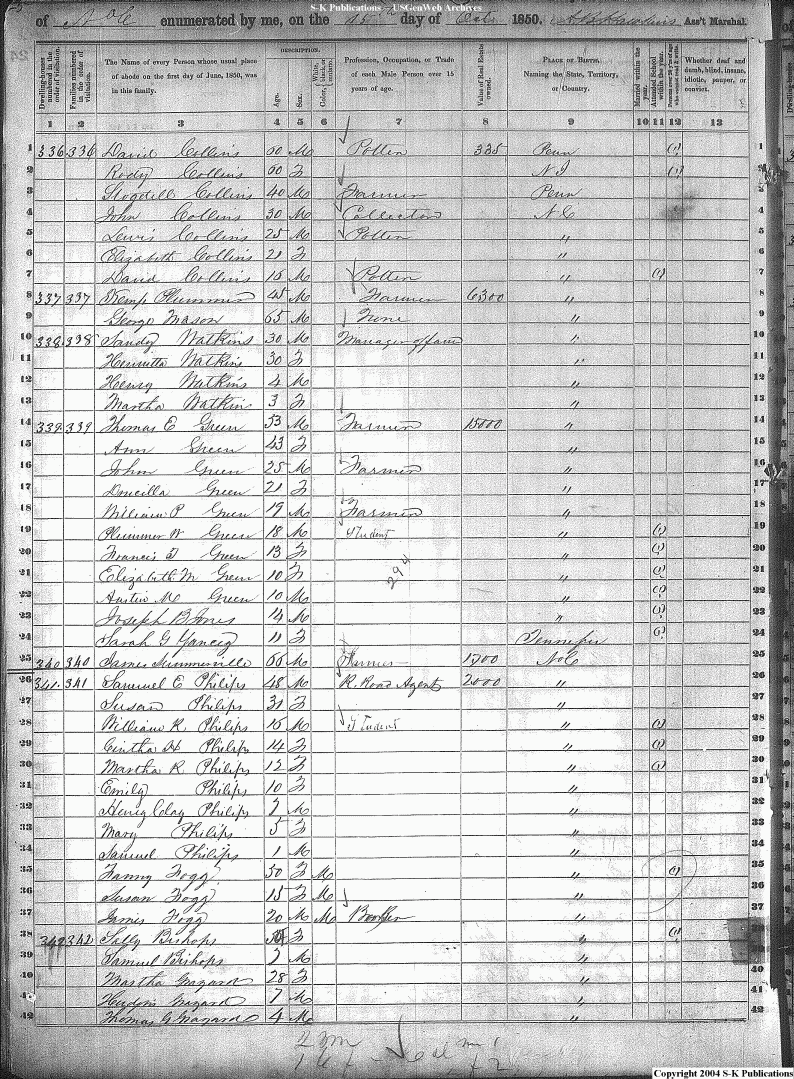 S-K Publications USGenWeb Archives
of N° C enumerated by me, on the 15 day of Oct 1850. Ass't Marshal.
Dwelling-houses numbered in the order of visitation. Families numbered in the order of visitation. The Name of every Person whose usual place of abode on the first day of June, 1850, was in this family. DESCRIPTION. Age. Sex. Color, White, black, or mulatto. Profession, Occupation, or Trade of each Male Person over 15 years of age. Value of Real Estate owned. PLACE OF BIRTH. Naming the State, Territory, or Country. Married within the year. Attended School within the year. Persons over 20 y'rs of age who cannot read & write. Whether deaf and dumb, blind, insane, idiotic, pauper, or convict.
1 2 3 4 5 6 7 8 9 10 11 12 13
1 336 336 David Collins 60 M Potter 335 Penn (1) 1
2 Collins 60 F N J (1) 2
3 Collins 40 M Farmer Penn 3
4 John Collins 30 M N C 4
5 Lewis Collins 25 M Potter " 5
6 Elizabeth Collins 21 F " 6
7 David Collins 15 M Potter " (1) 7
8 337 337 Kemp Plummer 45 M Farmer 6300 " 8
9 George Mason 65 M None " 9
10 338 338 Sandy Watkins 30 M Manager of farm " 10
11 Henrietta Watkins 30 F " 11
12 Henry Watkins 4 M " 12
13 Martha Watkins 3 F " 13
14 339 339 Thomas E Green 53 M Farmer 15000 " 14
15 Ann Green 43 F " 15
16 John Green 25 M Farmer " 16
17 Drucilla Green 21 F " 17
18 William P Green 19 M Farmer " 18
19 Plummer W Green 18 M Student " (1) 19
20 Francis T Green 13 F " (1) 20
21 Elizabeth M Green 10 F " (1) 21
22 Austin M Green 10 M " (1) 22
23 Joseph B Jones 14 M " (1) 23
24 Sarah G Yancey 11 F Tennessee (1) 24
25 340 340 James Summerville 66 M Farmer N C 25
26 341 341 Samuel E Philips 48 M R. Road Agent 2000 " 26
27 Susan Philips 31 F " 27
28 William R Philips 15 M Student " (1) 28
29 Cintha A Philips 14 F " (1) 29
30 Martha R Philips 12 F " (1) 30
31 Emily Philips 10 F " 31
32 Henry Clay Philips 7 M " 32
33 Mary Philips 5 F " 33
34 Samuel Philips 1 M " 34
35 Fanny Fogg 50 F M " (1) 35
36 Susan Fogg 15 F M " 36
37 James Fogg 20 M M " 37
38 342 342 Sally Bishops F " (1) 38
39 Samuel Bishops 7 M " 39
40 Martha 28 F " 40
41 7 M " 41
42 Thomas G 4 M " 42
294
Copyright 2004 S-K Publications